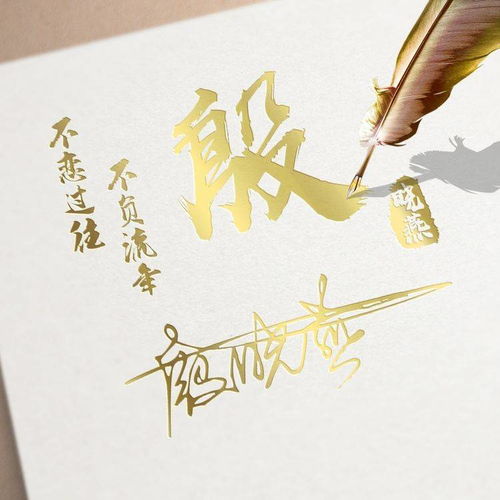 不恋过往
不负流年
殷
晓燕
殷晓燕